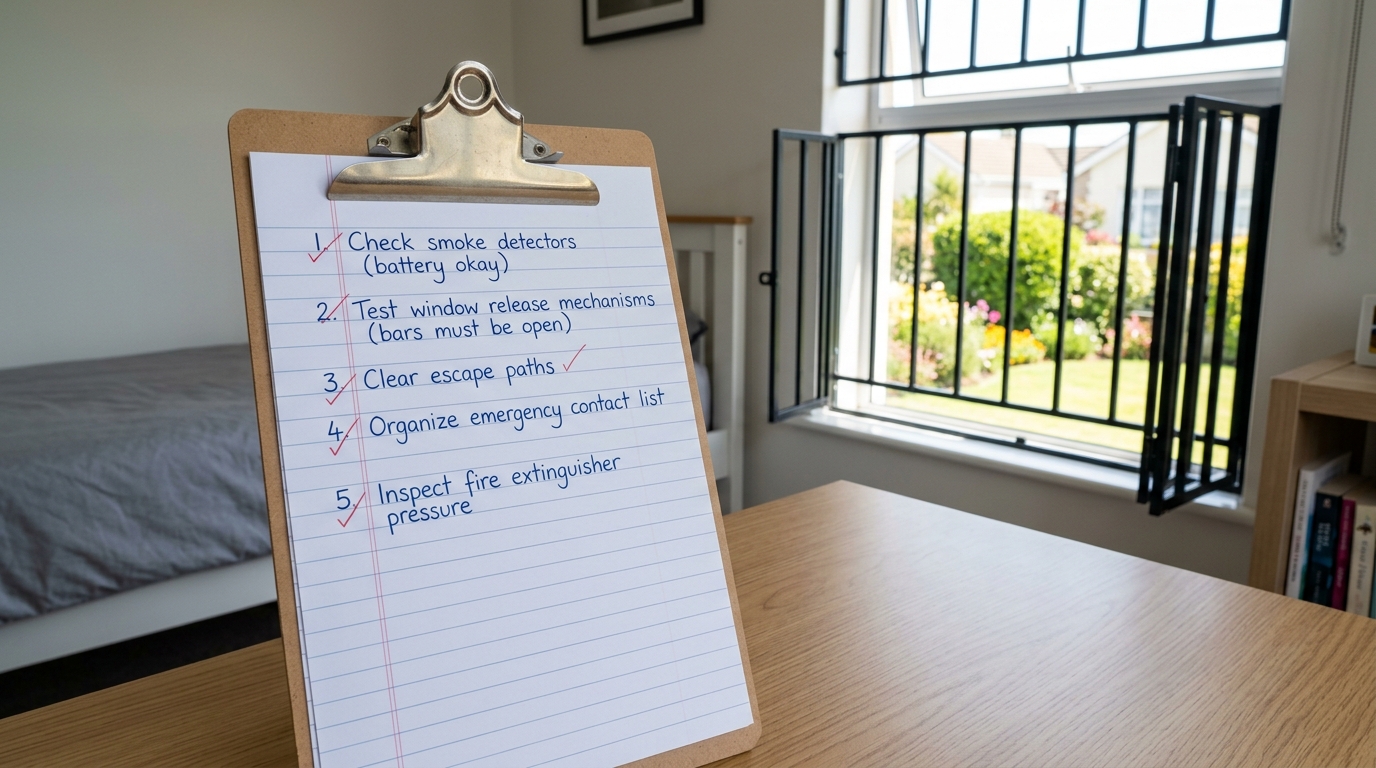 1. Check smoke detectors
(battery okay)
2. Test window release mechanisms
(bars must be open)
3. Clear escape paths
4. Organize emergency contact list
5. Inspect fire extinguisher
pressure